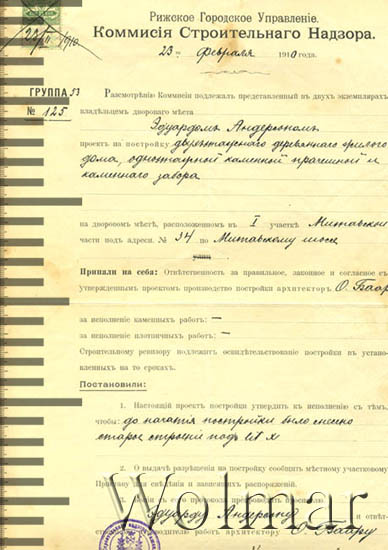 Рижское Городское Управленіе.
Коммисія Строительнаго Надзора.
23 февраля 1910 года.
23/II 1910
ГРУППА 53
№ 125
Разсмотрѣнію Коммисіи подлежалъ представленный въ двухъ экземплярахъ
владѣльцемъ дворового мѣста
Эдуардомъ Андерсономъ
проектъ на постройку двухэтажнаго деревяннаго жилого
дома, одноэтажной каменной прачешной и
каменнаго забора
на дворовомъ мѣстѣ, расположенномъ въ I участкѣ Митавской
части подъ адресн. № 34 по Митавскому шоссе
улицѣ
Приняли на себя: Отвѣтственность за правильное, законное и согласное съ
утвержденнымъ проектомъ производство постройки архитекторъ О. Бааръ
за исполненіе каменныхъ работъ: —
за исполненіе плотничныхъ работъ: —
Строительному ревизору подлежитъ освидѣтельствованіе постройки въ уста
новленныхъ на то срокахъ.
Постановили:
1. Настоящій проектъ постройки утвердить къ исполненію съ тѣмъ,
чтобы: до начатія постройки было снесено
старое строеніе подъ lit х
2. О выдачѣ разрѣшенія на постройку сообщить мѣстному участковому
Приставу для свѣдѣнія и зависящихъ распоряженій.
3. съ его проекта препроводить
Эдуарду Андерсону и отвѣт-
архитектору О. Баару
Wolmar